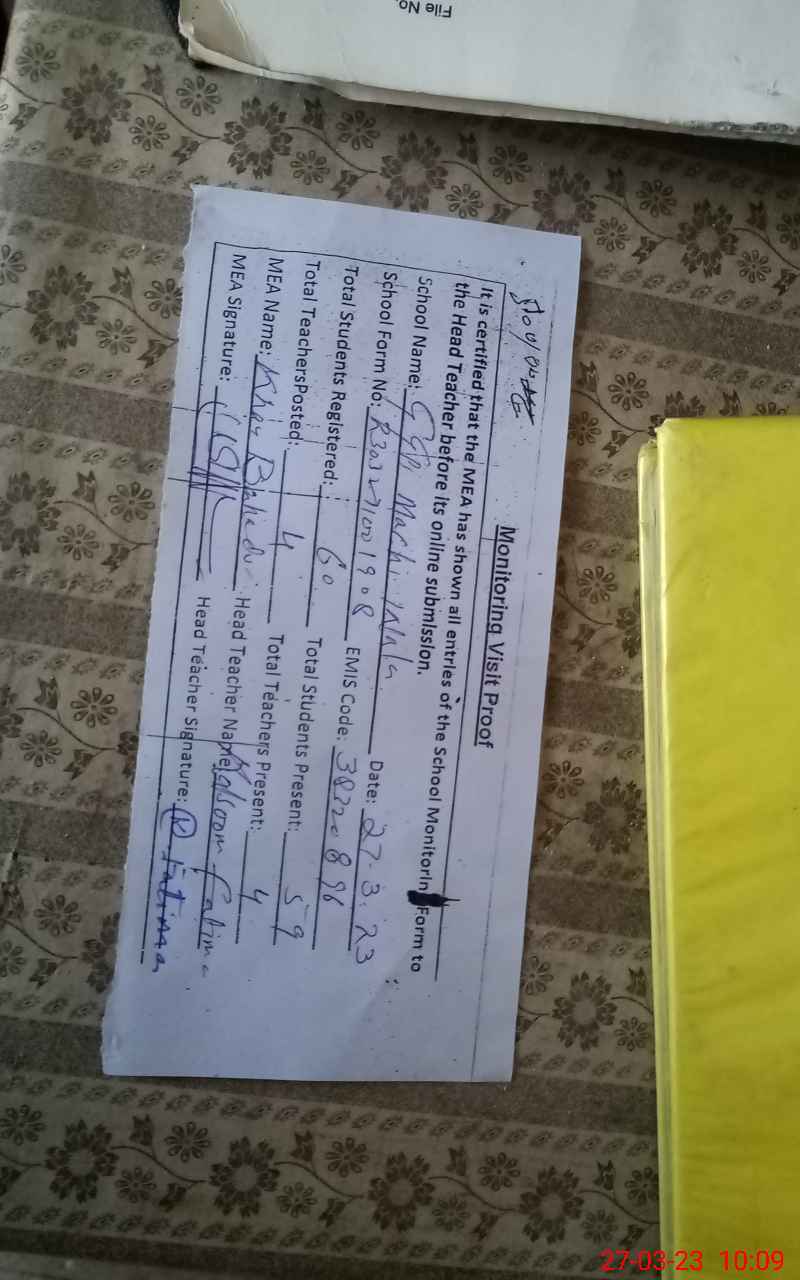 File No.
Monitoring Visit Proof
It is certified that the MEA has shown all entries of the School Monitorin Form to
the Head Teacher before its online submission.
School Name: Machi Date: 27.3.23
School Form No: EMIS Code: 38320896
Total Students Registered: 60 Total Students Present: 59
Total TeachersPosted: 4 Total Teachers Present: 4
MEA Name: Khan Head Teacher Name: Kalsoom Fatima
MEA Signature: Head Teacher Signature: K Fatima
27-03-23 10:09